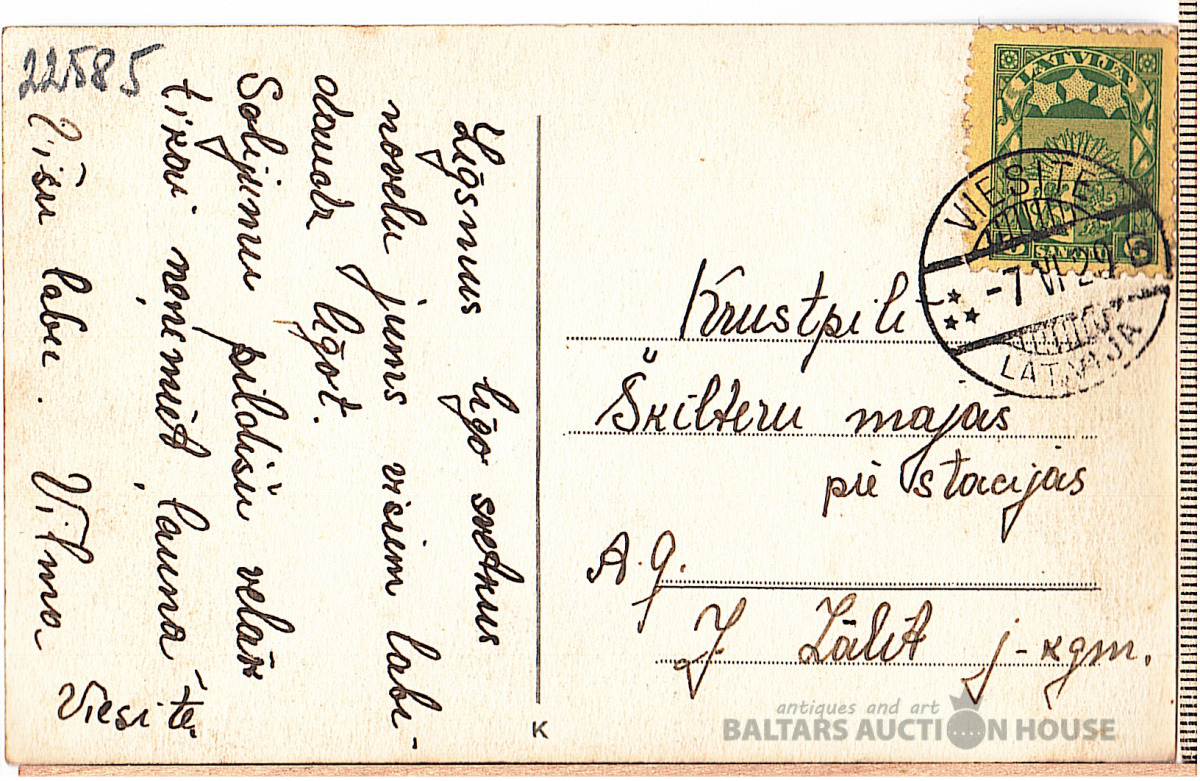 22585
Līgsmus līgo svetkus
novelu jums visiem labi-
damatz līgot.
Solijumu pildišu velāk
tikai neņemiet ļauna
Višu labu. Vilma
Viesitē
LATVIJA
SANTIMI 6
VIESITE
-7 VI 29
LATVIJA
Krustpili
Škilteru majas
pie stacijas
A. g.
J Zālit j-kgm.
K
antiques and art
BALTARS AUCTION HOUSE